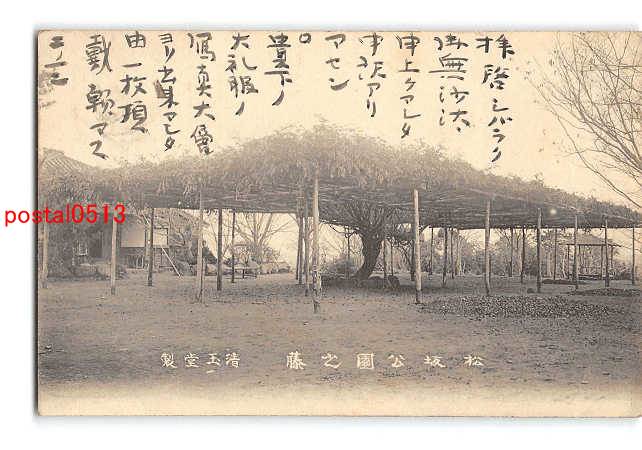 拝啓シバラク
御無沙汰
申上ケマシタ
申訳アリ
マセン
。
貴下ノ
大礼服ノ
写真大層
ヨリ出来マシタ
由一枚頂
戴願マス
二ノ三
postal0513
松坂公園之藤
清玉堂製